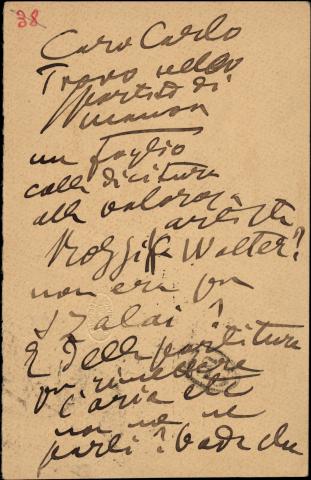 38
Caro Carlo
Trovo nello
spartito di
Manon
un foglio
colla dicitura
alla valorosa
artista
Walter?
non era per
Szalai?
E della partitura
per rimettere
l'aria
non me ne
parli? bada che